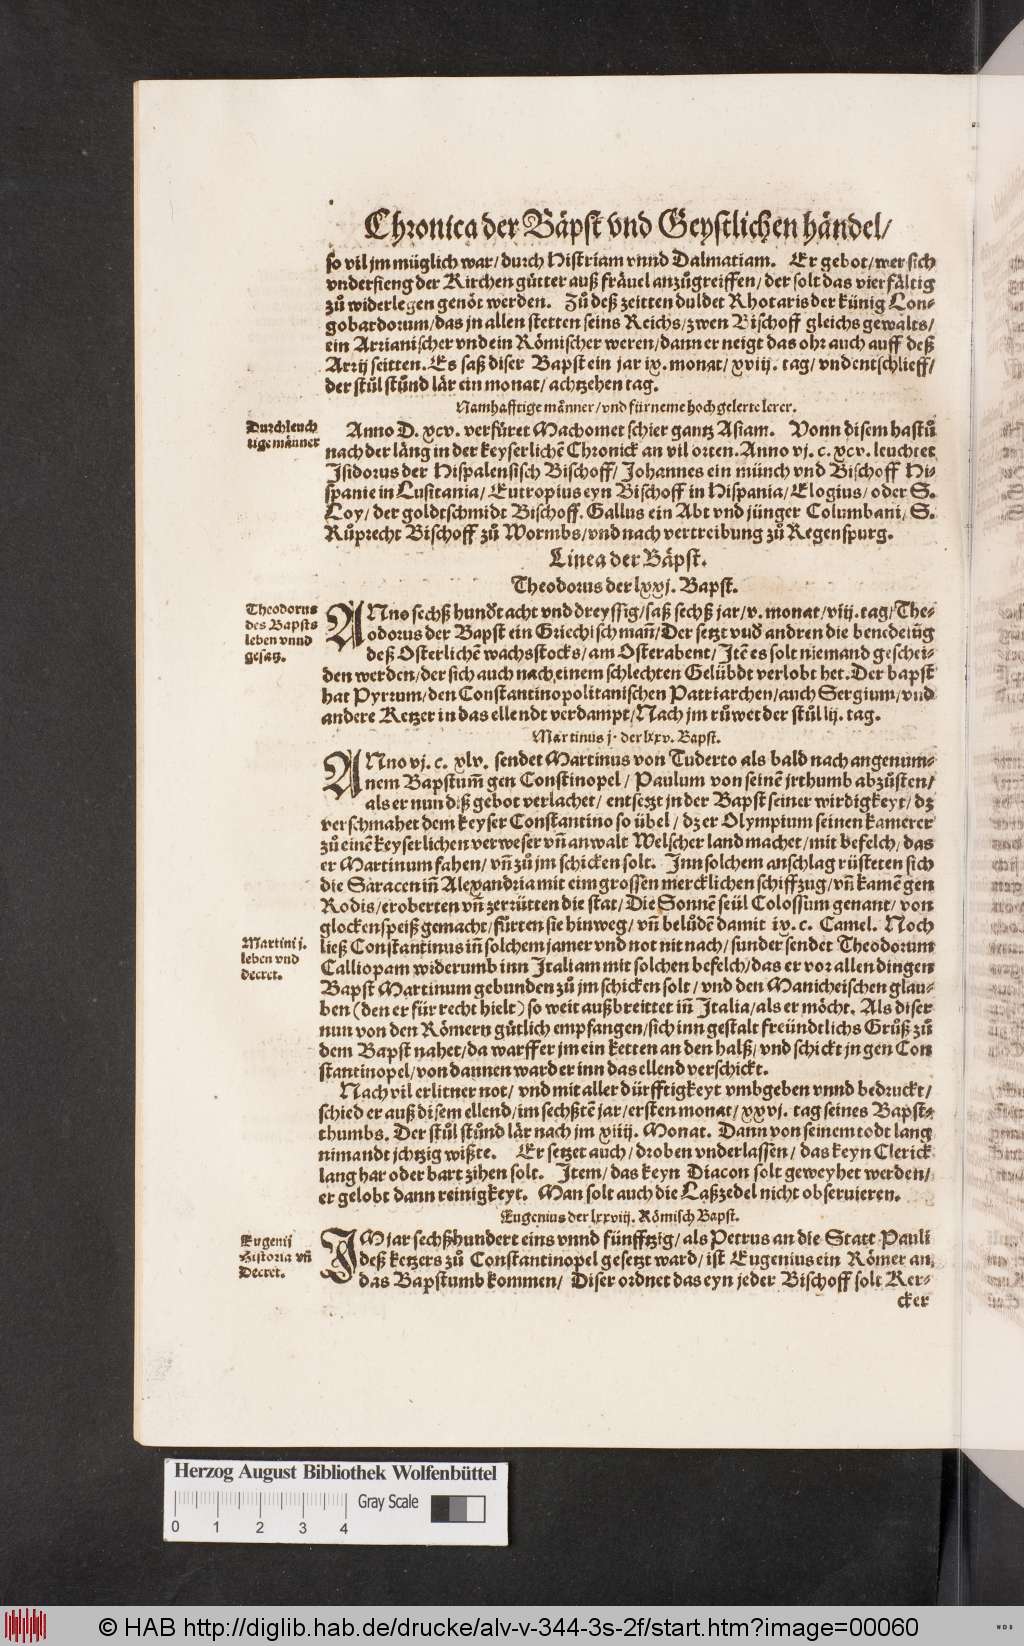 Chronica der Bäpst vnd Geystlichen händel/
so vil jm müglich war/ durch Histriam vnnd Dalmatiam. Er gebot/ wer sich
vnderfieng der Kirchen gütter auß fräuel anzůgreiffen/ der solt das vierfältig
zů widerlegen genöt werden. Zů deß zeitten duldet Rhotaris der künig Lon-
gobardorum/ das jn allen stetten seins Reichs/ zwen Bischoff gleichs gewalts/
ein Arrianischer vnd ein Römischer weren/ dann er neigt das ohr auch auff deß
Arrij seitten. Es saß diser Bapst ein jar ix. monat/ xviij. tag/ vnd entschlieff/
der stůl stůnd lär ein monat/ achtzehen tag.
Namhafftige männer/ vnd fürneme hochgelerte lerer.
Durchleuch
tige männer
Anno D. xcv. verfüret Machomet schier gantz Asiam. Vonn disem hastů
nach der läng in der keyserlichē Chronick an vil orten. Anno vj. c. xcv. leuchtet
Isidorus der Hispalensisch Bischoff/ Johannes ein münch vnd Bischoff Hi-
spanie in Lusitania/ Eutropius eyn Bischoff in Hispania/ Elogius/ oder S.
Loy/ der goldtschmidt Bischoff. Gallus ein Abt vnd jünger Columbani/ S.
Růprecht Bischoff zů Wormbs/ vnd nach vertreibung zů Regenspurg.
Linea der Bäpst.
Theodorus der lxxj. Bapst.
Theodorus
des Bapsts
leben vnnd
gesatz.
ANno sechß hundt acht vnd dreyssig/ saß sechß jar/ v. monat/ viij. tag/ The-
odorus der Bapst ein Griechisch mañ/ Der setzt vnd andren die benedeiūg
deß Osterlichē wachsstocks/ am Osterabent/ Itē es solt niemand geschei-
den werden/ der sich auch nach einem schlechten Gelübdt verlobt het. Der bapst
hat Pyrrum/ den Constantinopolitanischen Patriarchen/ auch Sergium/ vnd
andere Ketzer in das ellendt verdampt/ Nach jm růwet der stůl lij. tag.
Martinus j. der lxxv. Bapst.
ANno vj. c. xlv. sendet Martinus von Tuderto als bald nach angenum-
nem Bapstum̃ gen Constinopel/ Paulum von seinē jrthumb abzůsten/
als er nun diß gebot verlachet/ entsetzt jn der Bapst seiner wirdigkeyt/ dz
verschmahet dem keyser Constantino so übel/ dz er Olympium seinen kamerer
zů einē keyserlichen verweser vñ anwalt Welscher land machet/ mit befelch/ das
er Martinum fahen/ vñ zů jm schicken solt. Inn solchem anschlag rüsteten sich
die Saracen iñ Alexandria mit eim grossen mercklichen schiffzug/ vñ kamē gen
Rodis/ eroberten vñ zerrütten die stat/ Die Sonnē seül Colossum genant/ von
glockenspeiß gemacht/ fürten sie hinweg/ vñ belůdē damit ix. c. Camel. Noch
Martini j.
leben vnd
decret.
ließ Constantinus iñ solchem jamer vnd not nit nach/ sunder sendet Theodorum
Calliopam widerumb inn Italiam mit solchen befelch/ das er vor allen dingen
Bapst Martinum gebunden zů jm schicken solt/ vnd den Manicheischen glau-
ben (den er für recht hielt) so weit außbreittet iñ Italia/ als er möcht. Als diser
nun von den Römern gůtlich empfangen/ sich inn gestalt freündtlichs Grůß zů
dem Bapst nahet/ da warff er jm ein ketten an den halß/ vnd schickt jn gen Con
stantinopel/ von dannen ward er inn das ellend verschickt.
Nach vil erlitner not/ vnd mit aller dürfftigkeyt vmbgeben vnnd bedruckt/
schied er auß disem ellend/ im sechßtē jar/ ersten monat/ xxvj. tag seines Bapst-
thumbs. Der stůl stůnd lär nach jm xiiij. Monat. Dann von seinem todt lang
nimandt jchtzig wißte. Er setzet auch/ droben vnderlassen/ das keyn Clerick
lang har oder bart zihen solt. Item/ das keyn Diacon solt geweyhet werden/
er gelobt dann reinigkeyt. Man solt auch die Laßzedel nicht obseruieren.
Eugenius der lxxviij. Römisch Bapst.
Eugenij
Historia vñ
Decret.
IM jar sechßhundert eins vnnd fünfftzig/ als Petrus an die Statt Pauli
deß ketzers zů Constantinopel gesetzt ward/ ist Eugenius ein Römer an
das Bapstumb kommen/ Diser ordnet das eyn jeder Bischoff solt Ker-
cker
Herzog August Bibliothek Wolfenbüttel
Gray Scale
0 1 2 3 4
© HAB http://diglib.hab.de/drucke/alv-v-344-3s-2f/start.htm?image=00060